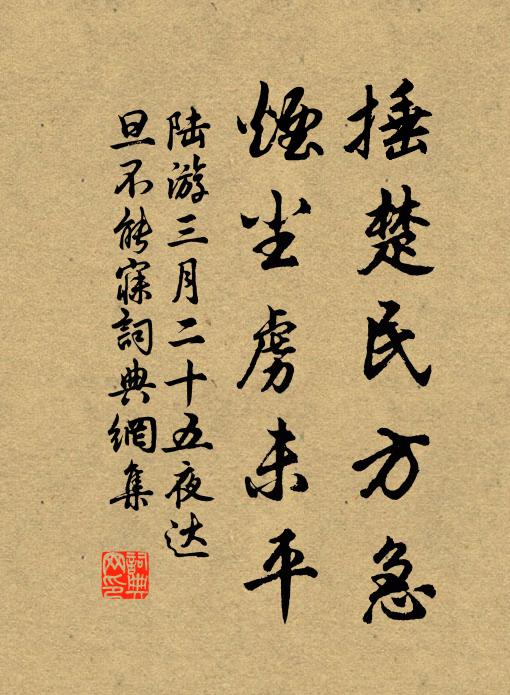 捶楚民方急
煙尘虏未平
陆游三月二十五夜达
旦不能寐詞典網集
詞典網印